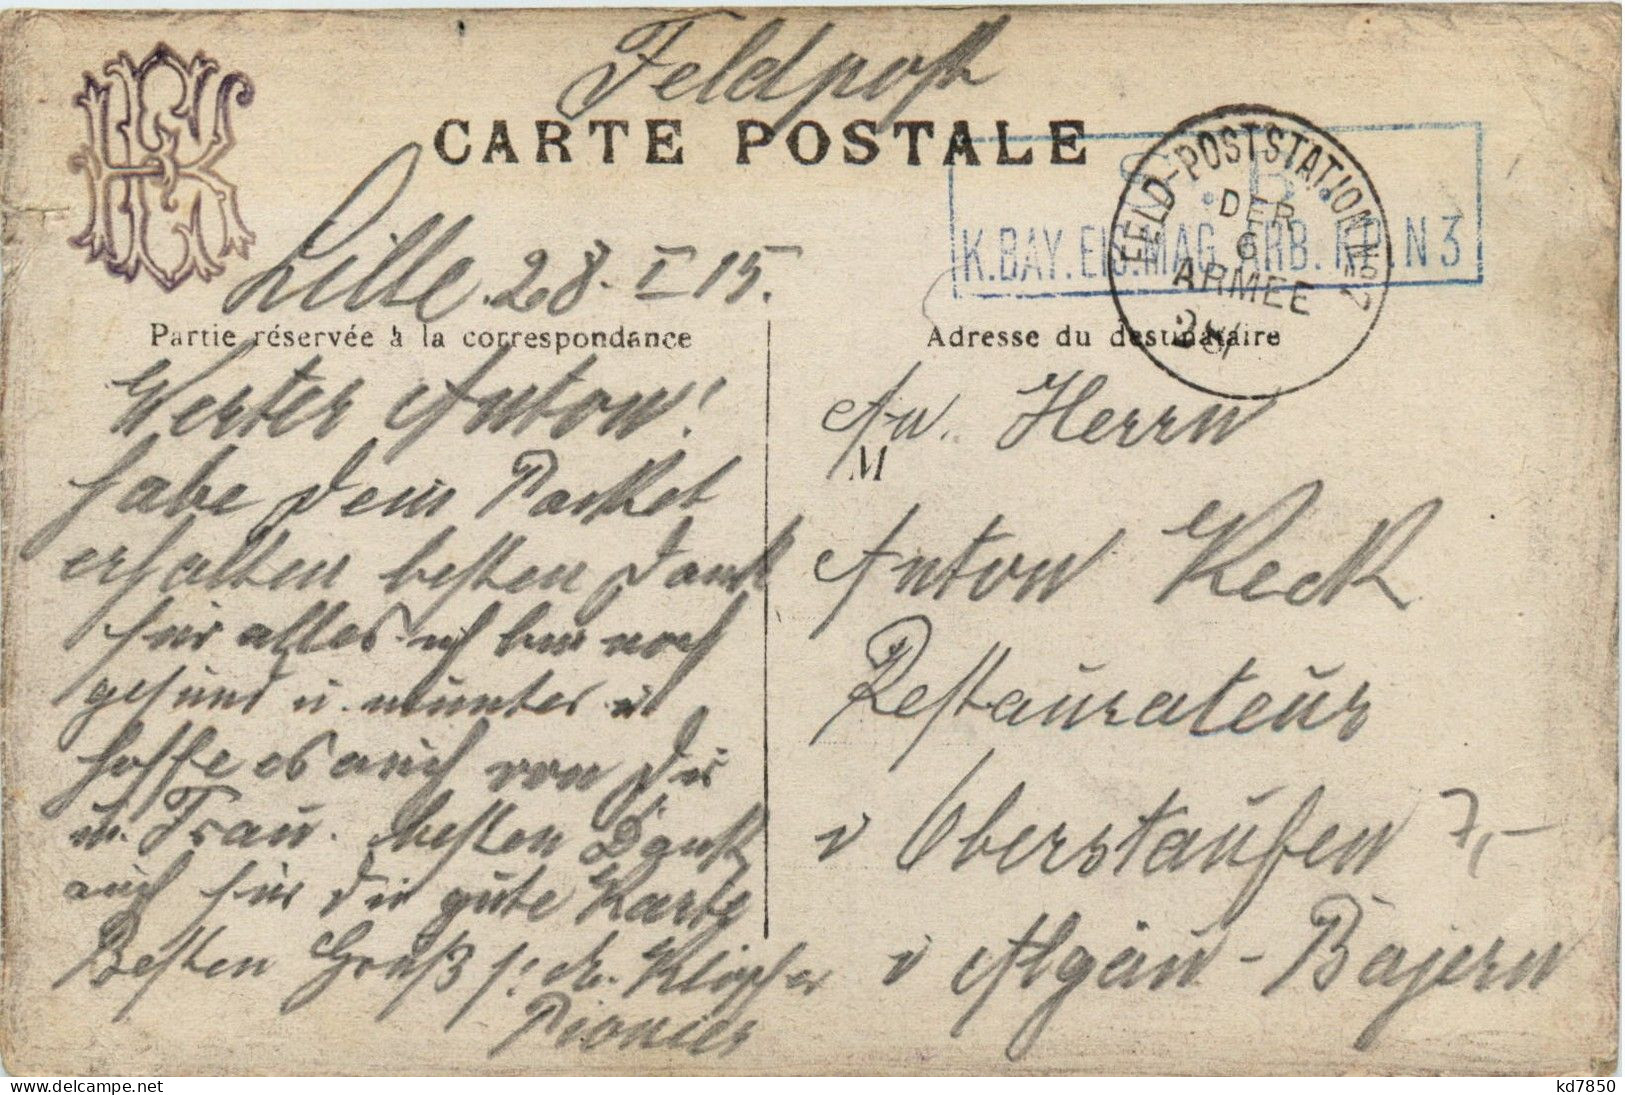 Feldpost
CARTE POSTALE
S. B.
K. BAY. EIS. MAG. ARB. KP. N 3
FELD-POSTSTATION No 2
DER
6
ARMEE
Lille. 28. I 15.
Partie réservée à la correspondance
Werter Anton!
habe dein Packet
erhalten besten Dank
für alles ich bin noch
gesund u. munter u
hoffe es auch von dir
u. Frau. besten Dank
auch für die gute Karte
Besten Gruß
Pionier
Adresse du destinataire
An. Herrn
M
Anton Keck
Restaurateur
i Oberstaufen
i Algäu - Bajern
7,-
kd7850